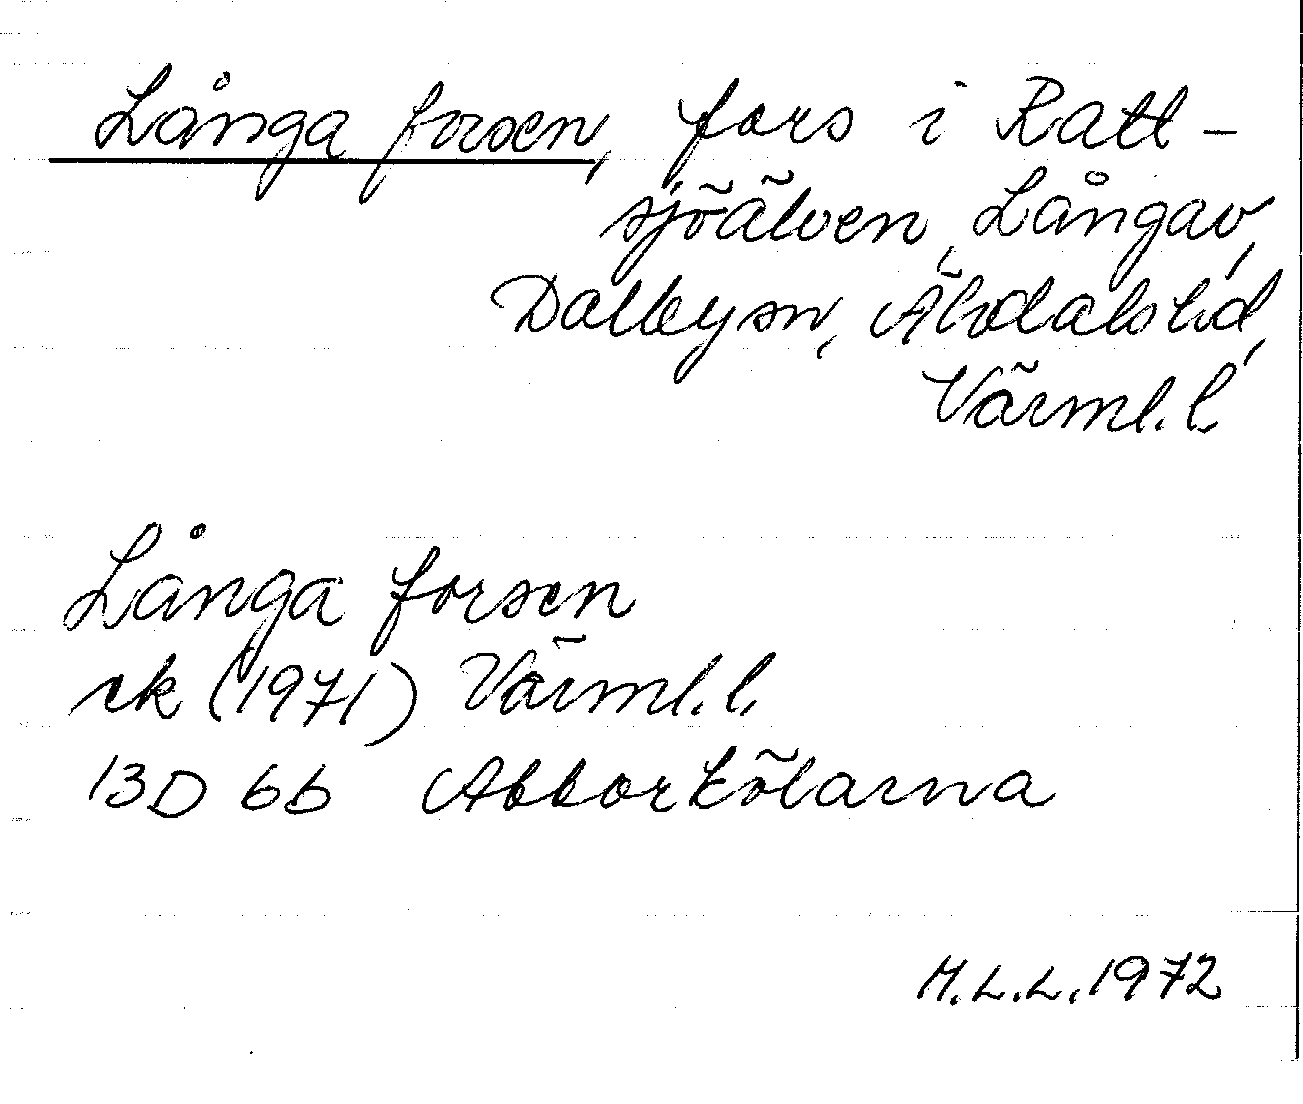 Långa forsen, fors i Ratt-
sjöälven, Långav,
Dalby sn, Älvdals hd,
Värml. l.
Långa forsen
rk (1971) Värml. l.
13D 6b Abborkölarna
M.L.L. 1972